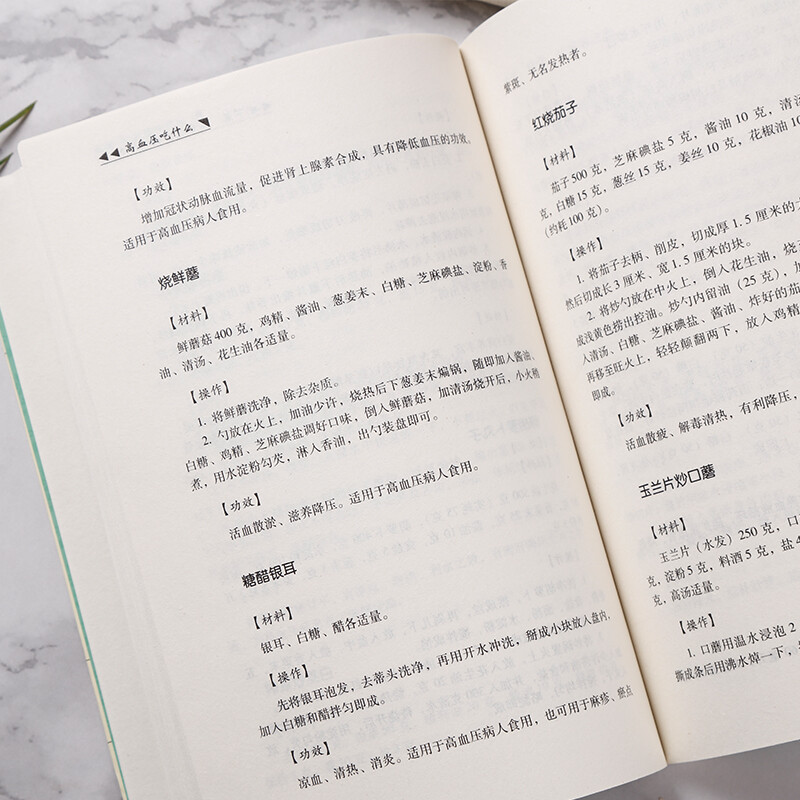 高血压吃什么
【功效】
增加冠状动脉血流量，促进肾上腺素合成，具有降低血压的功效。
适用于高血压病人食用。
烧鲜蘑
【材料】
鲜蘑菇400克，鸡精、酱油、葱姜末、白糖、芝麻碘盐、淀粉、香
油、清汤、花生油各适量。
【操作】
1. 将鲜蘑洗净，除去杂质。
2. 勺放在火上，加油少许，烧热后下葱姜末煸锅，随即加入酱油、
白糖、鸡精、芝麻碘盐调好口味，倒入鲜蘑菇，加清汤烧开后，小火稍
煮，用水淀粉勾芡，淋入香油，出勺装盘即可。
【功效】
活血散淤、滋养降压。适用于高血压病人食用。
糖醋银耳
【材料】
银耳、白糖、醋各适量。
【操作】
先将银耳泡发，去蒂头洗净，再用开水冲洗，掰成小块放入盘内，
加入白糖和醋拌匀即成。
【功效】
凉血、清热、消炎。适用于高血压病人食用，也可用于麻疹、瘀点
紫斑、无名发热者。
红烧茄子
【材料】
茄子500克，芝麻碘盐5克，酱油10克，清汤
克，白糖15克，葱丝15克，姜丝10克，花椒油10
（约耗100克）。
【操作】
1. 将茄子去柄、削皮，切成厚1.5厘米的
然后切成长3厘米、宽1.5厘米的块。
2. 将炒勺放在中火上，倒入花生油，烧
成浅黄色捞出控油。炒勺内留油（25克），加
人清汤、白糖、芝麻碘盐、酱油、炸好的茄
再移至旺火上，轻轻颠翻两下，放入鸡精
即成。
【功效】
活血散疲、解毒清热，有利降压，
玉兰片炒口蘑
【材料】
玉兰片（水发）250克，口
克，淀粉5克，料酒5克，盐4
克，高汤适量。
【操作】
1. 口蘑用温水浸泡2
撕成条后用沸水焯一下，